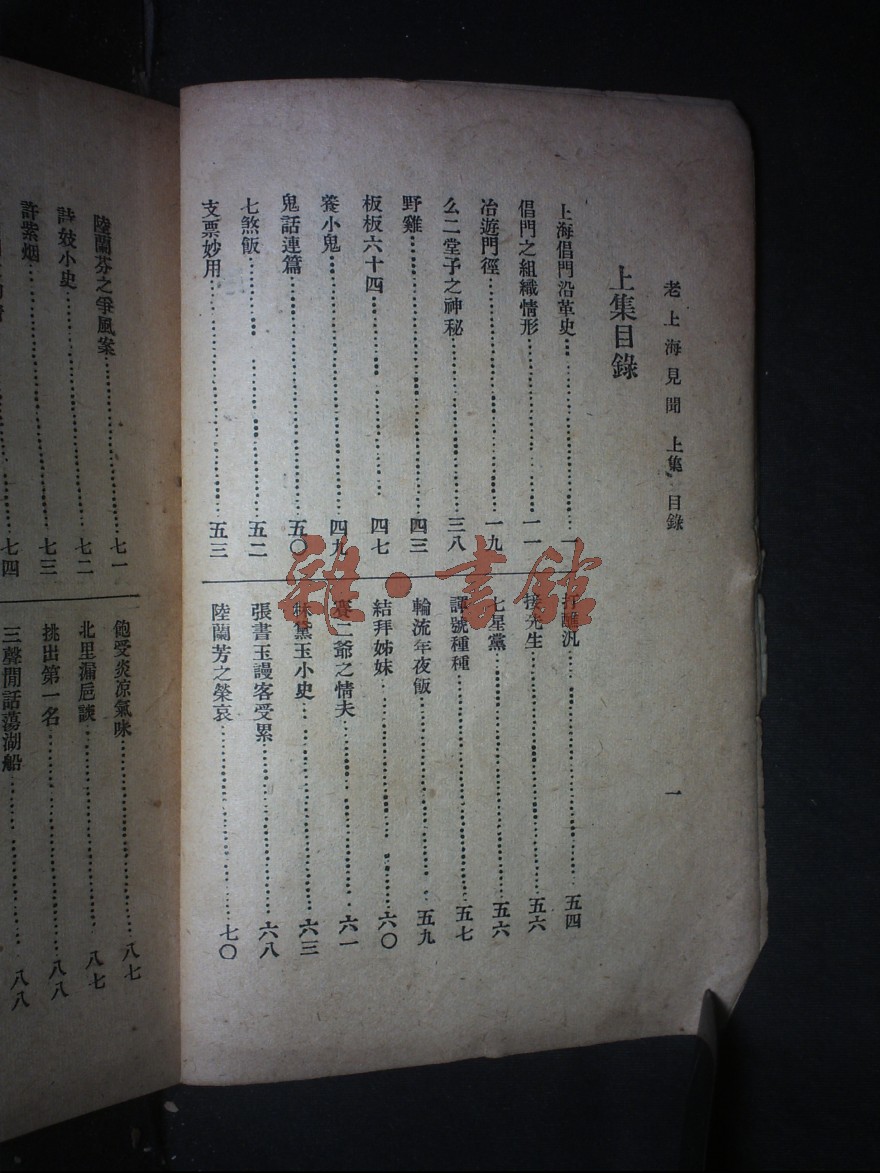 老上海見聞 上集 目錄
一
上集目錄
上海倡門沿革史 一
倡門之組織情形 一一
冶遊門徑 一九
么二堂子之神秘 三八
野雞 四三
板板六十四 四七
養小鬼 四九
鬼話連篇 五〇
七煞飯 五二
支票妙用 五三
打醮汎 五四
接先生 五六
七星黨 五六
諢號種種 五七
輪流年夜飯 五九
結拜姊妹 六〇
賽二爺之情夫 六一
林黛玉小史 六三
張書玉謾客受累 六八
陸蘭芳之榮哀 七〇
陸蘭芬之爭風案 七一
詩妓小史 七二
許紫烟 七三
七四
飽受炎凉氣味 八七
北里漏巵談 八七
挑出第一名 八八
三聲閒話蕩湖船 八八
雜·書館